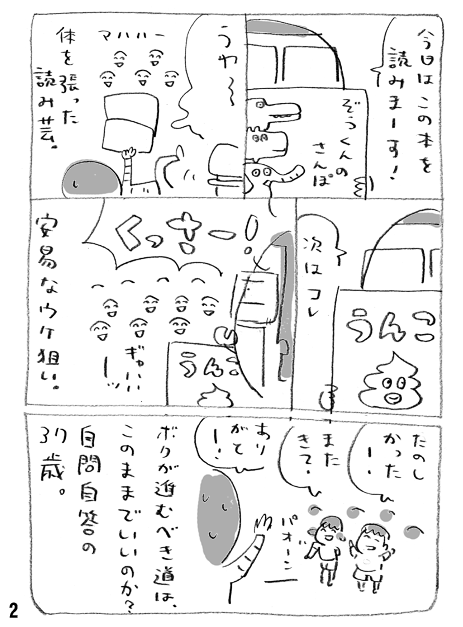 今日はこの本を
読みまーす！
ぞうくんの
さんぽ
うわ〜
アハハー
体を張った
読み芸。
次はコレ
うんこ
くっさー！
ぎゃはー
ーッ
うんこ
安易なウケ狙い。
たのし
かったー！
また
きてー
パオーン
あり
がとー！
ボクが進むべき道は、
このままでいいのか？
自問自答の
39歳。
2